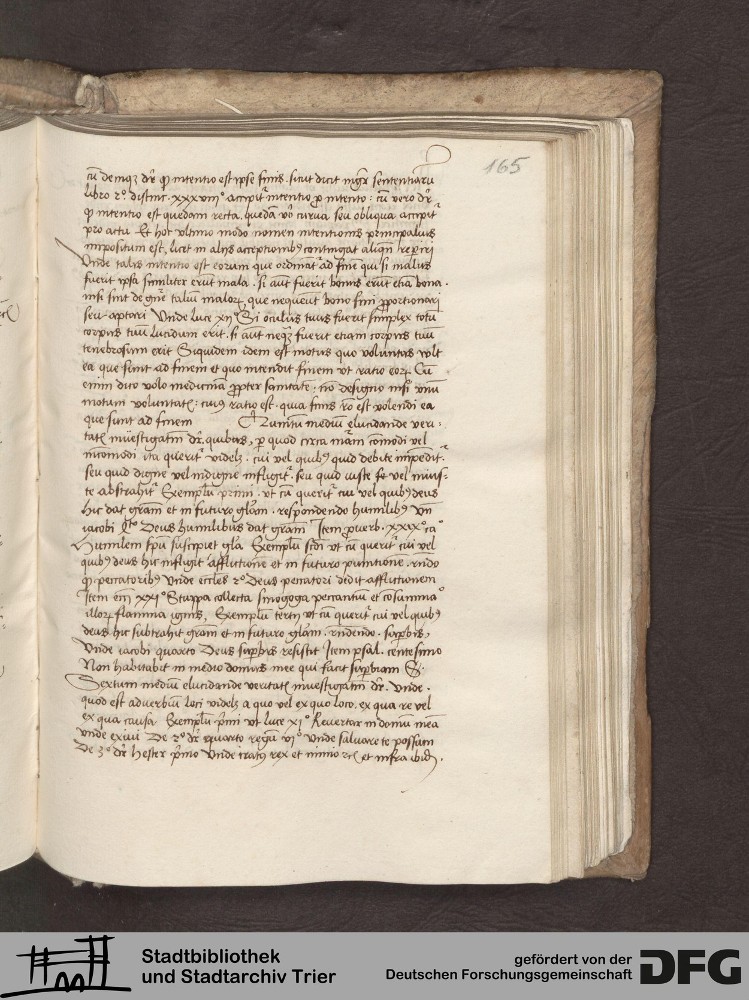 165
cū deniqȝ dr̄ ꝙ intentio est ipse finis. sicut dicit mgr̄ sententiarū
libro 2º distinc. xxxviiiº accipit᷑ intentio ꝓ intento: cū vero dr̄
ꝙ intentio est quedam recta, quedā vo curua seu obliqua accipit᷑
pro actu Et hoc vltimo modo nomen intentionis principalius
impositum est, licet in alijs acceptionibꝰ contingat aliqn̄ reperiri
Unde talis intentio est eorum que ordināt᷑ ad finē qui si malus
fuerit ipsa similiter erūt mala. si aūt fuerit bonus erūt etiā bona.
nisi sint de gn̄e talium malorꝝ, que nequeunt bono fini proportionari
seu aptari Unde luce xjº Si oculus tuus fuerit simplex totū
corpus tuū lucidum erit. si aūt neqȝ fuerit etiam corpus tuū
tenebrosum erit Siquidem idem est motus quo voluntas vult
ea que sunt ad finem et quo intendit finem vt ratio eorꝝ Cū
enim dico volo medicinā propter sanitatē. nō designo nisi vnū
motum voluntatꝭ: cuiꝰ ratio est. quia finis rō est volendi ea
que sunt ad finem Quintum mediū elucidande veri-
tatꝭ inuestigatiuū dr̄. quibus, p quod circa mām cōmodi vel
incomodi ita querit᷑ videlȝ. cui vel quibꝰ quid debite impedit᷑.
seu quid digne vel indigne infligit᷑. seu quid iuste se vel inius-
te abstrahit᷑ Exemplū primi. vt cū querit᷑ cui vel quibꝰ deus
hic dat grām et in futuro glām. respondendo humilibꝰ Vn̄
iacobi 4to Deus humilibus dat grām Item prouerb. xxixº caº
Humilem spm̄ suscipiet glā. Exemplū scdi vt cū querit᷑ cui vel
quibꝰ deus hic infligit afflictionē et in futuro punitionē. rn̄do
ꝙ peccatoribꝰ Unde eccles 2º Deus peccatori dedit afflictionem
Item eccī xxiº Stuppa collecta sinogoga peccantiū et cosummaº
illorꝝ flamma ignis, Exemplū tertij vt cū querit᷑ cui vel quibꝰ
deus hic subtrahit grām et in futuro glām. rn̄dendo. supbis,
Unde iacobi quarto Deus supbis resistit Item psal. centesimo
Non habitabit in medio domus mee qui facit supbiam
Sextum mediū elucidande veritatꝭ inuestigatiuū dr̄. Unde.
quod est aduerbiū loci videlȝ a quo vel ex quo loco, ex qua re vel
ex qua causa Exemplū p̄mi vt luce xiº Reuertar in domū meā
vnde exiui De 2º dr̄ quarto regū viº Unde saluare te possum
De 3º dr̄ hester p̄mo Unde iratꝰ rex et nimio ꝛc̄ et infra ibid̄.
Stadtbibliothek
und Stadtarchiv Trier
gefördert von der
Deutschen Forschungsgemeinschaft
DFG